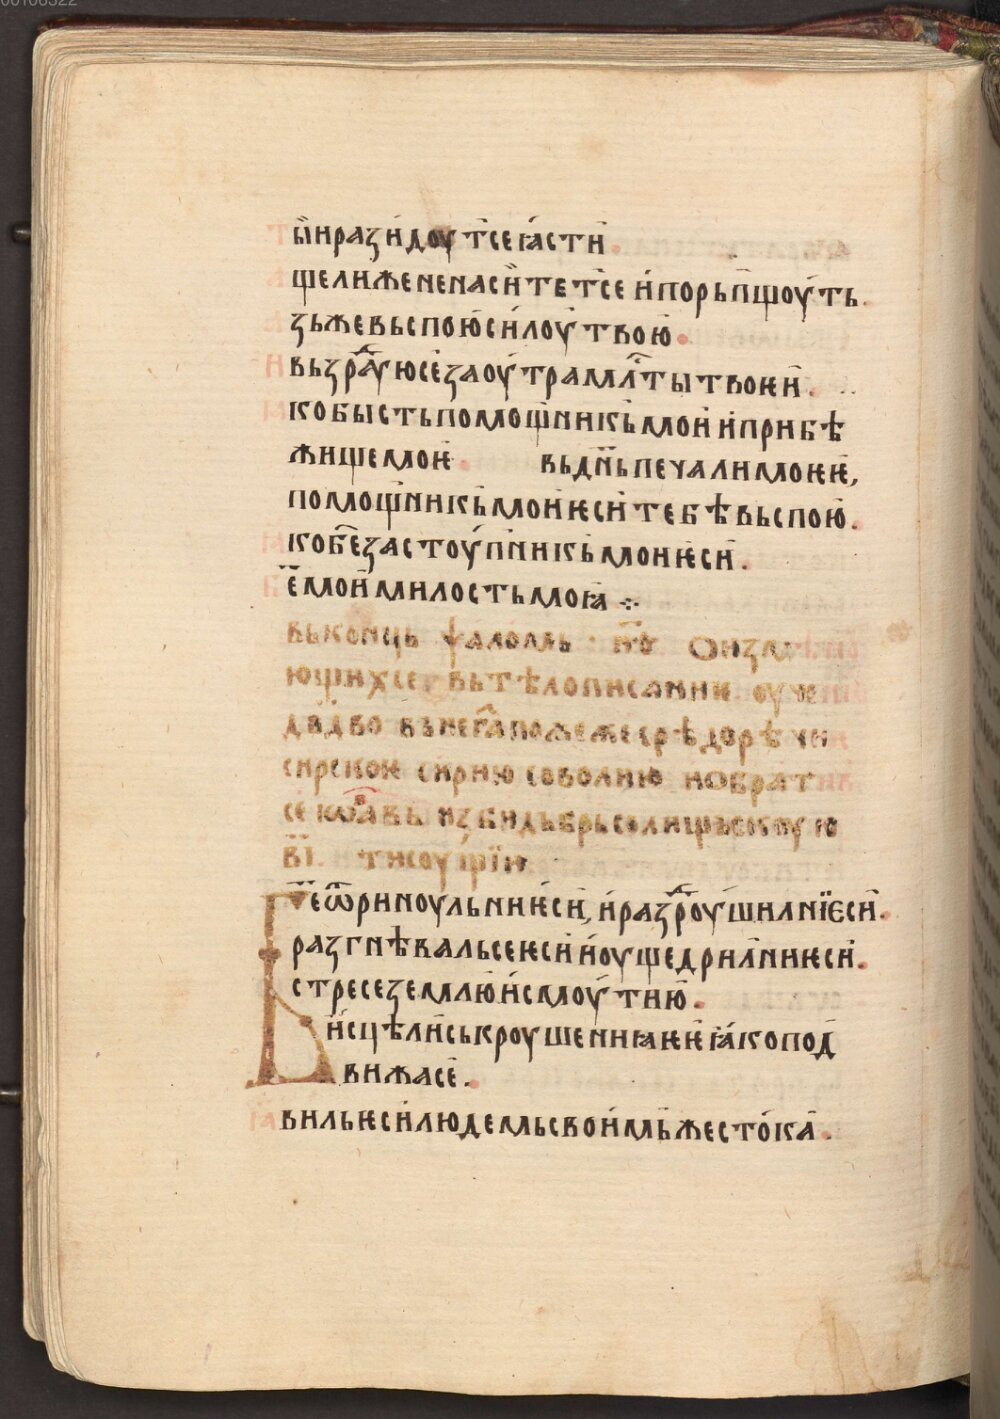 00106322
ты́и разиⷣдоуⷮтсе ꙗ́сти
ще ли же не насы́тетⷭсе и́ порьпщоуть.
зь же вьспою си́лоу твою̀.
И вьзрⷣаую се заоу́тра млⷭти твоѥи̑.
ко бысть помощникь мои и прибѣ
жище моѥ. вь дн҃ь печали моѥѥ,
помощникь мои ѥси̑ тебѣ вьспою̀.
ко бе҃ заступникь мои ѥси̑.
бе҃ мои милость моꙗ ⁘
вь коньць ѱаломь н҃ѳ Ѡ изм
ющихсе. вь тѣлописаниѥ оуче
дв҃дво вьнегⷣа пожеже срѣдорѣчи
сирскоѥ сирию соволию и обрат
се іѡавь изби дьбрь солищьскоую
в҃і. тисоу́щїи
Бе҃ ѿриноуль ни ѥси̑, и́ разⷣроу́шил ни ѥси̑.
разгнѣвальсе ѥси̑ и оущедриль ни ѥси̑.
стресе землю и́ смоу́ти ю̀.
и́сцѣли ськроушениꙗ ѥѥ ꙗ́ко под
вижасе.
ꙗвиль ѥси̑ людемь свои́мь жесто́каꙗ.